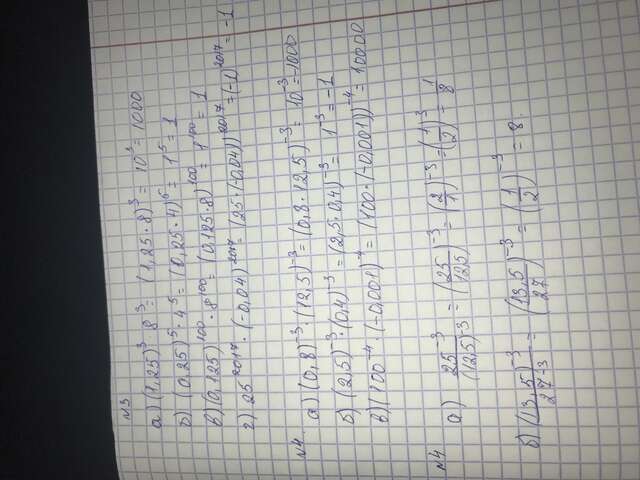 №3
а) (1,25)³ · 8³ = (1,25 · 8)³ = 10³ = 1000
б) (0,25)⁵ · 4⁵ = (0,25 · 4)⁵ = 1⁵ = 1
в) (0,125)¹⁰⁰ · 8¹⁰⁰ = (0,125 · 8)¹⁰⁰ = 1¹⁰⁰ = 1
г) 25²⁰¹⁷ · (-0,04)²⁰¹⁷ = (25 · (-0,04))²⁰¹⁷ = (-1)²⁰¹⁷ = -1
№4.
а) (0,8)⁻³ · (12,5)⁻³ = (0,8 · 12,5)⁻³ = 10⁻³ = -1000
б) (2,5)⁻³ · (0,4)⁻³ = (2,5 · 0,4)⁻³ = 1⁻³ = -1
в) (100⁻⁴ · (-0,001)⁻⁴ = (100 · (-0,001))⁻⁴ = 10000
№4
а) 25⁻³/(125)⁻³ = (25/125)⁻³ = (2/1)⁻³ = (1/2)³ = 1/8
б) (13,5)⁻³/27⁻³ = (13,5/27)⁻³ = (1/2)⁻³ = 8.